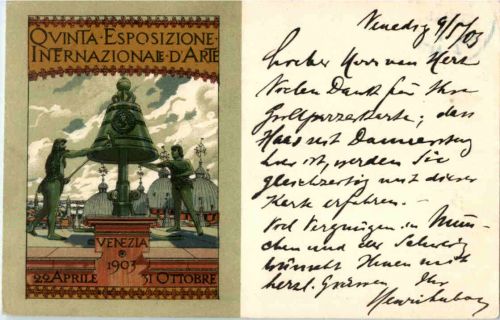 QVINTA·ESPOSIZIONE
INTERNAZIONALE·D'ARTE
VENEZIA
1903
22 APRILE 31 OTTOBRE
Venedig 9/V/03
Lieber Herr van
Vielen Dank für Ihre
; dass
Haas seit Donnerstag
hier ist, werden Sie
gleichzeitig mit dieser
Karte erfahren. –
Viel Vergnügen in Mün-
chen und der Schweiz
wünscht Ihnen mit
herzl. Grüssen Ihr